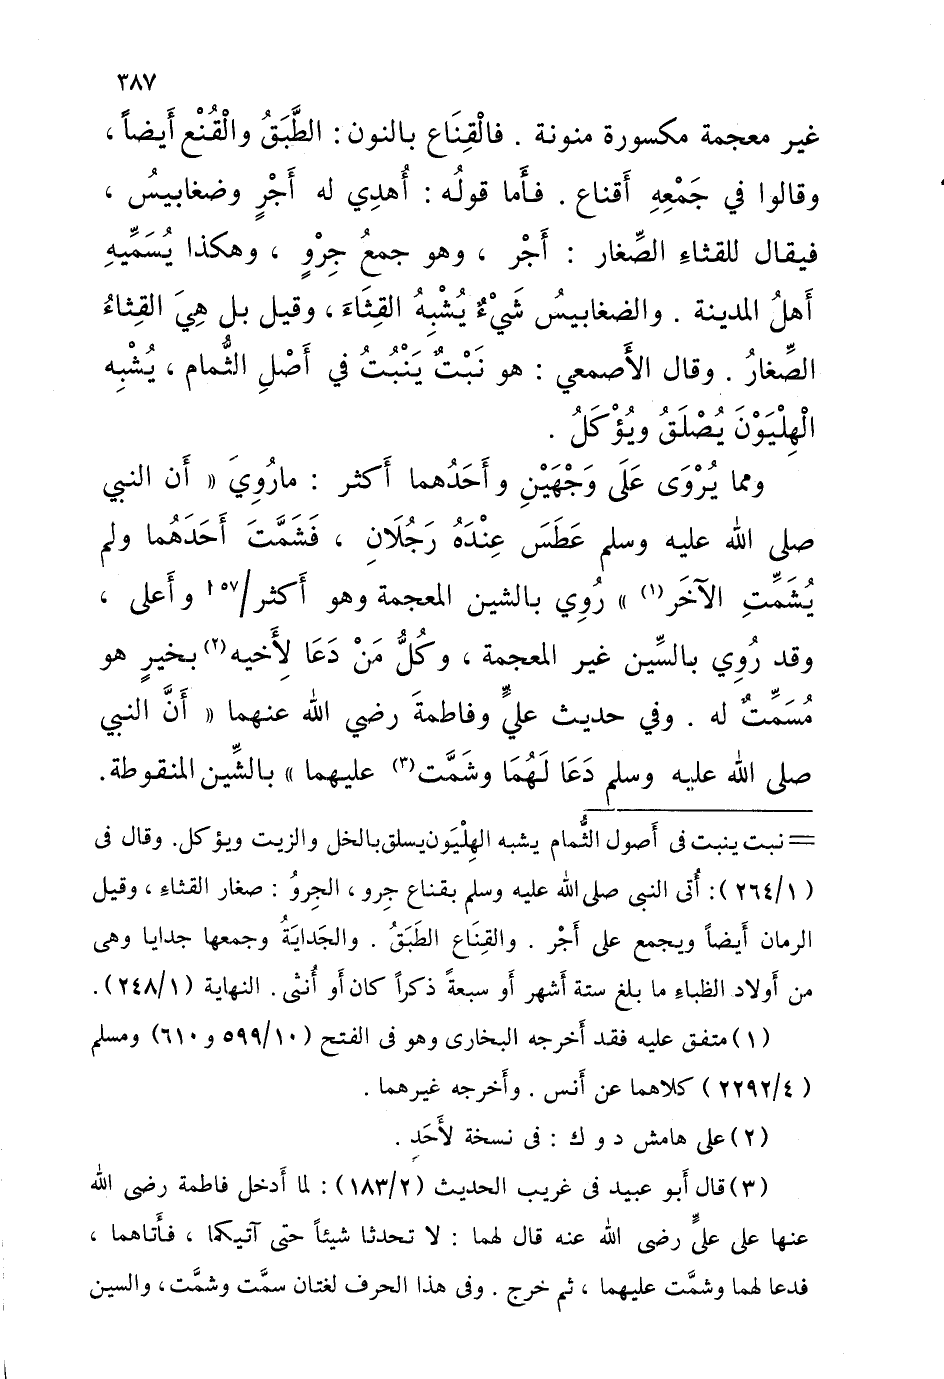 ٣٨٧
غير معجمة مكسورة منونة . فالْقِنَاع بالنون : الطَّبَقُ والْقُنْع أَيضاً ،
وقالوا في جَمْعِهِ أقناع . فأَما قولُه : أُهدِي له أَجْرٍ وضغابيسُ ،
فيقال للقثاءِ الصِّغار : أَجْر ، وهو جمعُ جِرْوٍ ، وهكذا يُسَمِّيهِ
أَهلُ المدينة . والضغابيسُ شَيْءٌ يُشْبِهُ القِثَاءَ ، وقيل بل هِيَ القِثاءُ
الصِّغارُ . وقال الأَصمعي : هو نَبْتٌ يَنْبُتُ في أَصْلِ الثُّمام ، يُشْبِه
الْهِلْيَوْنَ يُصْلَقُ ويُؤْكَلُ .
ومما يُرْوَى عَلَى وَجْهَيْنِ وأَحَدُهما أَكثر : مارُوِيَ « أَن النبي
صلى الله عليه وسلم عَطَسَ عِنْدَهُ رَجُلَانِ ، فَشَمَّتَ أَحَدَهُما ولم
يُشَمِّتِ الآخَر(١) » رُوِي بالشين المعجمة وهو أَكثر/١٥٧ وأَعلى ،
وقد رُوِي بالسِّين غير المعجمة ، وكُلُّ مَنْ دَعَا لِأَخيه(٢) بخيرٍ هو
مُسَمِّتٌ له . وفي حديث عليٍّ وفاطمةَ رضي الله عنهما « أَنَّ النبي
صلى الله عليه وسلم دَعَا لَهُمَا وشَمَّت(٣) عليهما » بالشِّين المنقوطة.
= نبت ينبت فى أصول الثُّمام يشبه الهِلْيَون يسلق بالخل والزيت ويؤكل. وقال فى
(٢٦٤/١): أُتى النبى صلى الله عليه وسلم بقناع جِرو ، الجروُ : صغار القثاء ، وقيل
الرمان أيضاً ويجمع على أَجْر . والقِنَاع الطَبَقُ . والجَدايَةُ وجمعها جدايا وهى
من أولاد الظباء ما بلغ ستة أشهر أو سبعةً ذكراً كان أو أُنثى. النهاية (٢٤٨/١).
(١) متفق عليه فقد أخرجه البخارى وهو فى الفتح (٥٩٩/١٠ و ٦١٠) ومسلم
(٢٢٩٢/٤) كلاهما عن أنس . وأخرجه غيرهما .
(٢) على هامش د و ك : فى نسخة لِأَحَدٍ .
(٣) قال أبو عبيد فى غريب الحديث (١٨٣/٢) : لما أَدخل فاطمة رضى الله
عنها على عليٍّ رضى الله عنه قال لهما : لا تحدثا شيئاً حتى آتيكما ، فأَتاهما ،
فدعا لهما وشمَّت عليهما ، ثم خرج . وفى هذا الحرف لغتان سمَّت وشمَّت، والسين